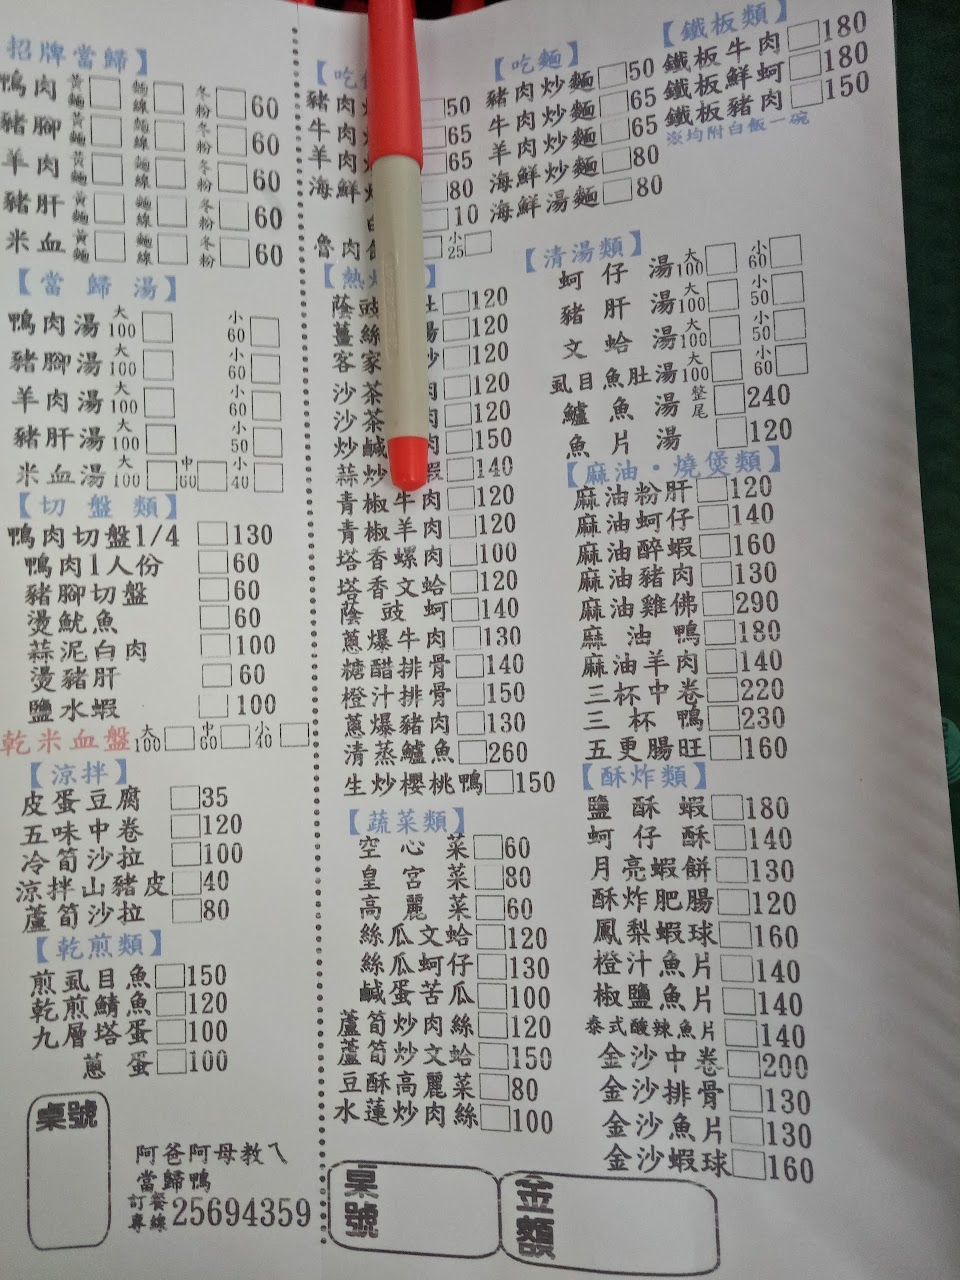 招牌當歸】
鴨肉 黃麵 麵線 冬粉 60
豬腳 黃麵 麵線 冬粉 60
羊肉 黃麵 麵線 冬粉 60
豬肝 黃麵 麵線 冬粉 60
米血 黃麵 麵線 冬粉 60
【當歸湯】
鴨肉湯 大100 小60
豬腳湯 大100 小60
羊肉湯 大100 小60
豬肝湯 大100 小50
米血湯 大100 中60 小40
【切盤類】
鴨肉切盤1/4 130
鴨肉1人份 60
豬腳切盤 60
燙魷魚 60
蒜泥白肉 100
燙豬肝 60
鹽水蝦 100
乾米血盤 大100 中60 小40
【涼拌】
皮蛋豆腐 35
五味中卷 120
冷筍沙拉 100
涼拌山豬皮 40
蘆筍沙拉 80
【乾煎類】
煎虱目魚 150
乾煎鯖魚 120
九層塔蛋 100
蔥蛋 100
桌號
阿爸阿母教ㄟ
當歸鴨
訂餐專線 25694359
【吃
豬肉 50
牛肉 65
羊肉 65
海鮮 80
10
魯肉 小25
【熱
蔭豉 肚 120
薑絲 腸 120
客家 炒 120
沙茶 肉 120
沙茶 肉 120
炒鹹 肉 150
蒜炒 蝦 140
青椒牛肉 120
青椒羊肉 120
塔香螺肉 100
塔香文蛤 120
蔭豉蚵 140
蔥爆牛肉 130
糖醋排骨 140
橙汁排骨 150
蔥爆豬肉 130
清蒸鱸魚 260
生炒櫻桃鴨 150
【蔬菜類】
空心菜 60
皇宮菜 80
高麗菜 60
絲瓜文蛤 120
絲瓜蚵仔 130
鹹蛋苦瓜 100
蘆筍炒肉絲 120
蘆筍炒文蛤 150
豆酥高麗菜 80
水蓮炒肉絲 100
桌號
【吃麵】
豬肉炒麵 50
牛肉炒麵 65
羊肉炒麵 65
海鮮炒麵 80
海鮮湯麵 80
【鐵板類】
鐵板牛肉 180
鐵板鮮蚵 180
鐵板豬肉 150
※均附白飯一碗
【清湯類】
蚵仔湯 大100 小60
豬肝湯 大100 小50
文蛤湯 大100 小50
虱目魚肚湯 大100 小60
鱸魚湯 整尾 240
魚片湯 120
【麻油・燒煲類】
麻油粉肝 120
麻油蚵仔 140
麻油醉蝦 160
麻油豬肉 130
麻油雞佛 290
麻油鴨 180
麻油羊肉 140
三杯中卷 220
三杯鴨 230
五更腸旺 160
【酥炸類】
鹽酥蝦 180
蚵仔酥 140
月亮蝦餅 130
酥炸肥腸 120
鳳梨蝦球 160
橙汁魚片 140
椒鹽魚片 140
泰式酸辣魚片 140
金沙中卷 200
金沙排骨 130
金沙魚片 130
金沙蝦球 160
金額